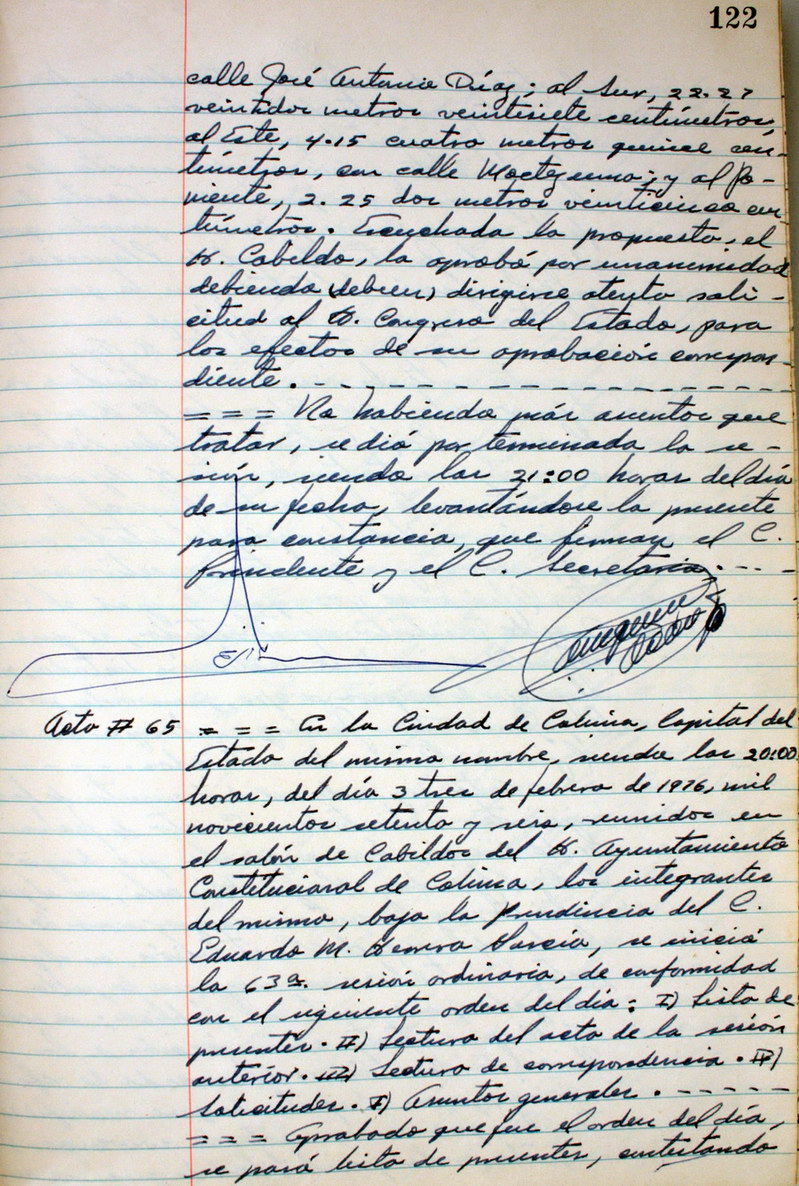 122
calle José Antonio Díaz; al Sur, 22.27
veintidos metros veintisiete centímetros,
al Este, 4.15 cuatro metros quince cen-
tímetros, con calle Moctezuma; y al Po-
niente, 2.25 dos metros veinticinco cen-
tímetros. Escuchada la propuesta, el
H. Cabildo, la aprobó por unanimidad
debiendo (deben) dirigirse atenta soli-
citud al H. Congreso del Estado, para
los efectos de su aprobación correspon-
diente. - - - - - - - - - - - - - -
= = = No habiendo más asuntos que
tratar, se dió por terminada la se-
sión, siendo las 21:00 horas del día
de su fecha, levantándose la presente
para constancia, que firman el C.
Presidente y el C. Secretario. - - -
Acta # 65 = = = En la Ciudad de Colima, Capital del
Estado del mismo nombre, siendo las 20:00
horas, del día 3 tres de febrero de 1976, mil
novecientos setenta y seis, reunidos en
el salón de Cabildos del H. Ayuntamiento
Constitucional de Colima, los integrantes
del mismo, bajo la Presidencia del C.
Eduardo M. Herrera García, se inició
la 63a. sesión ordinaria, de conformidad
con el siguiente orden del día: I) Lista de
presentes. II) Lectura del acta de la sesión
anterior. III) Lectura de correspondencia. IV)
Solicitudes. V) Asuntos generales. - - - - -
= = = Aprobado que fue el orden del día,
se pasó lista de presentes, contestando